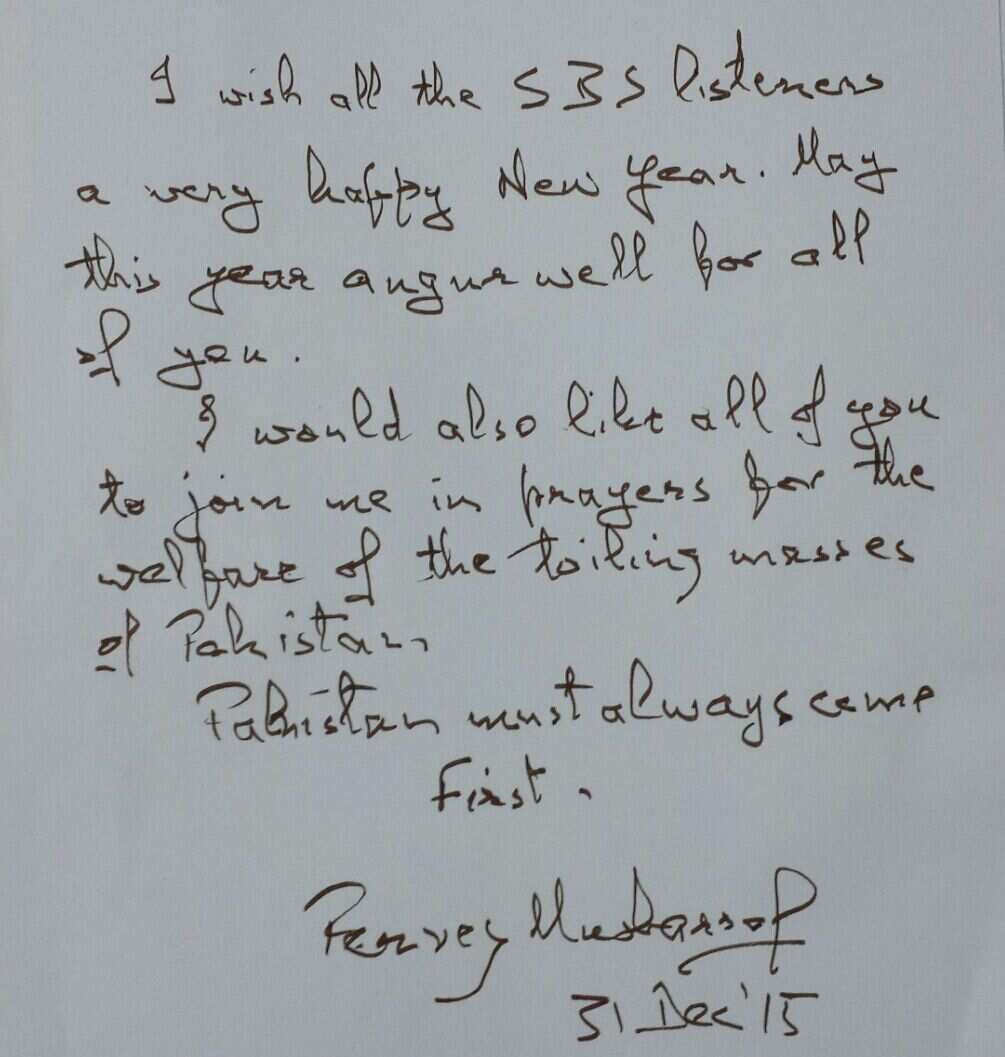 I wish all the SBS listeners
a very happy New Year. May
this year augur well for all
of you.
I would also like all of you
to join me in prayers for the
welfare of the toiling masses
of Pakistan
Pakistan must always come
First.
Pervez Musharraf
31 Dec'15